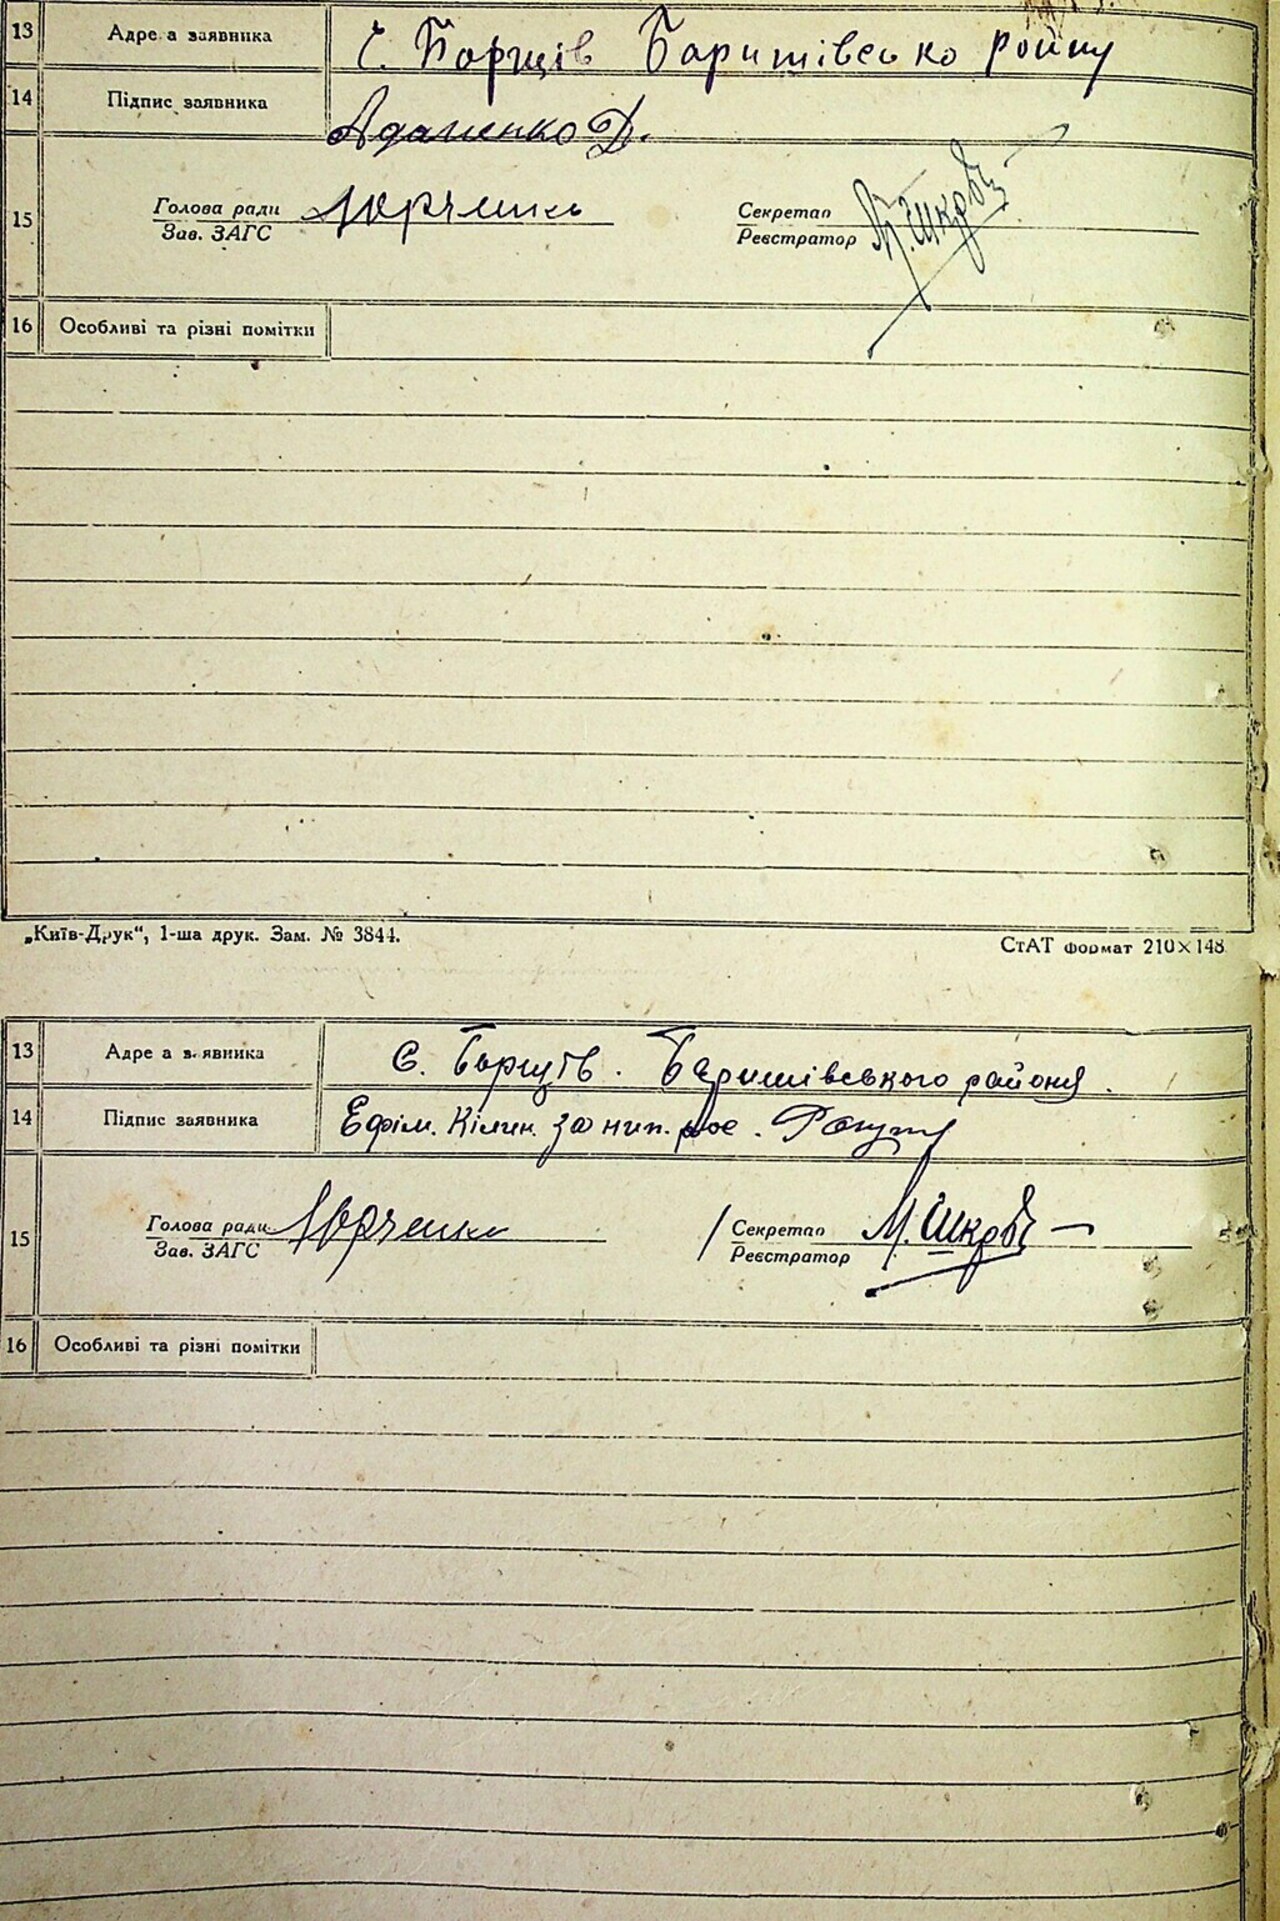 13 Адре а заявника с. Борщів Баришівсько району
14 Підпис заявника Адаменко Д.
15 Голова ради Юрченко Секретар
Зав. ЗАГС Реєстратор
16 Особливі та різні помітки
„Київ-Друк“, 1-ша друк. Зам. № 3844. СтАТ формат 210×148
13 Адре а з явника с. Борщів. Баришівського района.
14 Підпис заявника Ефім. Кілин. за нип. рос.
15 Голова ради Юрченко Секретар М. Шкро
Зав. ЗАГС Реєстратор
16 Особливі та різні помітки